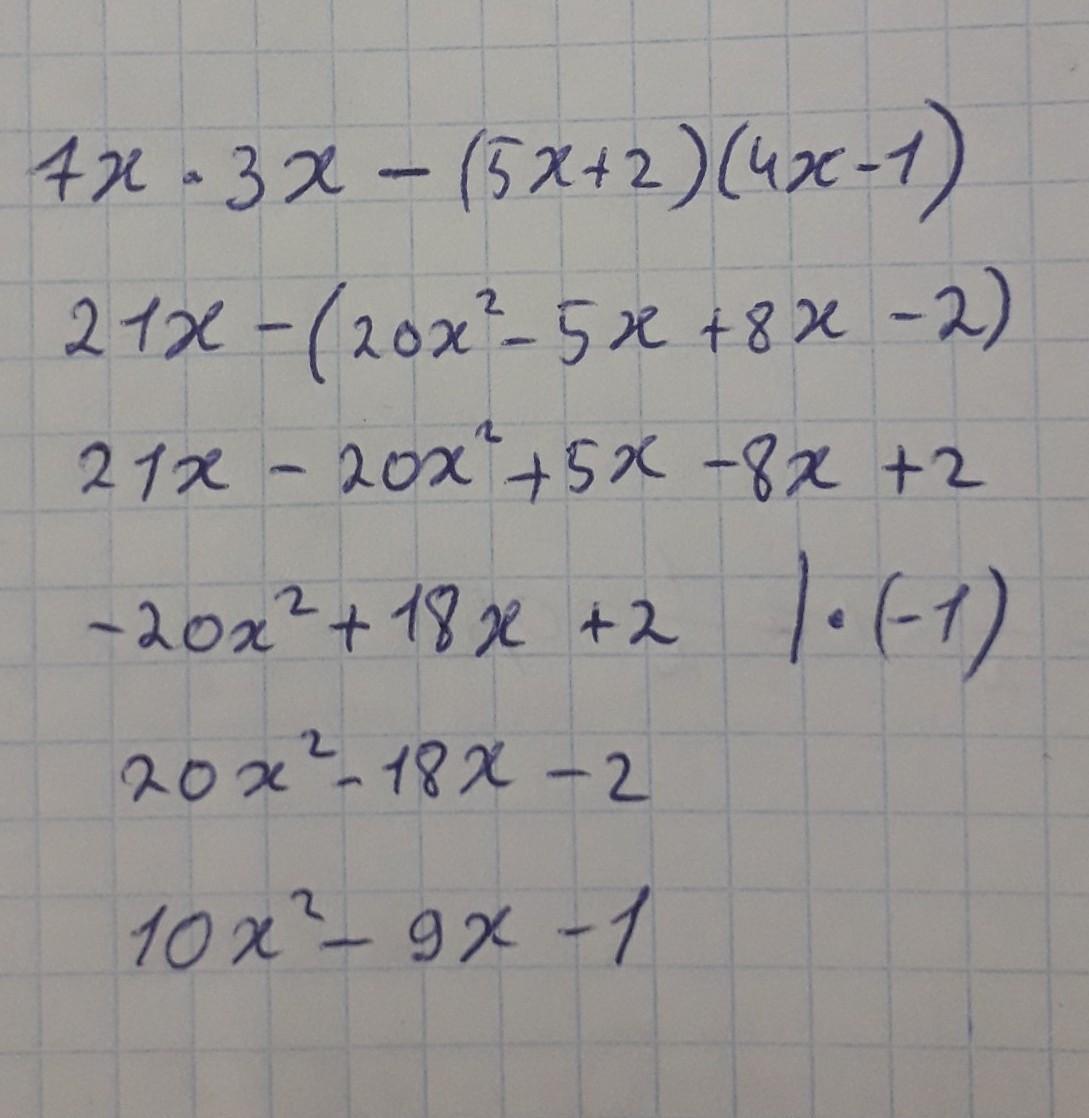 7x · 3x - (5x+2)(4x-1)
21x - (20x² - 5x + 8x - 2)
21x - 20x² + 5x - 8x + 2
-20x² + 18x + 2 | · (-1)
20x² - 18x - 2
10x² - 9x - 1